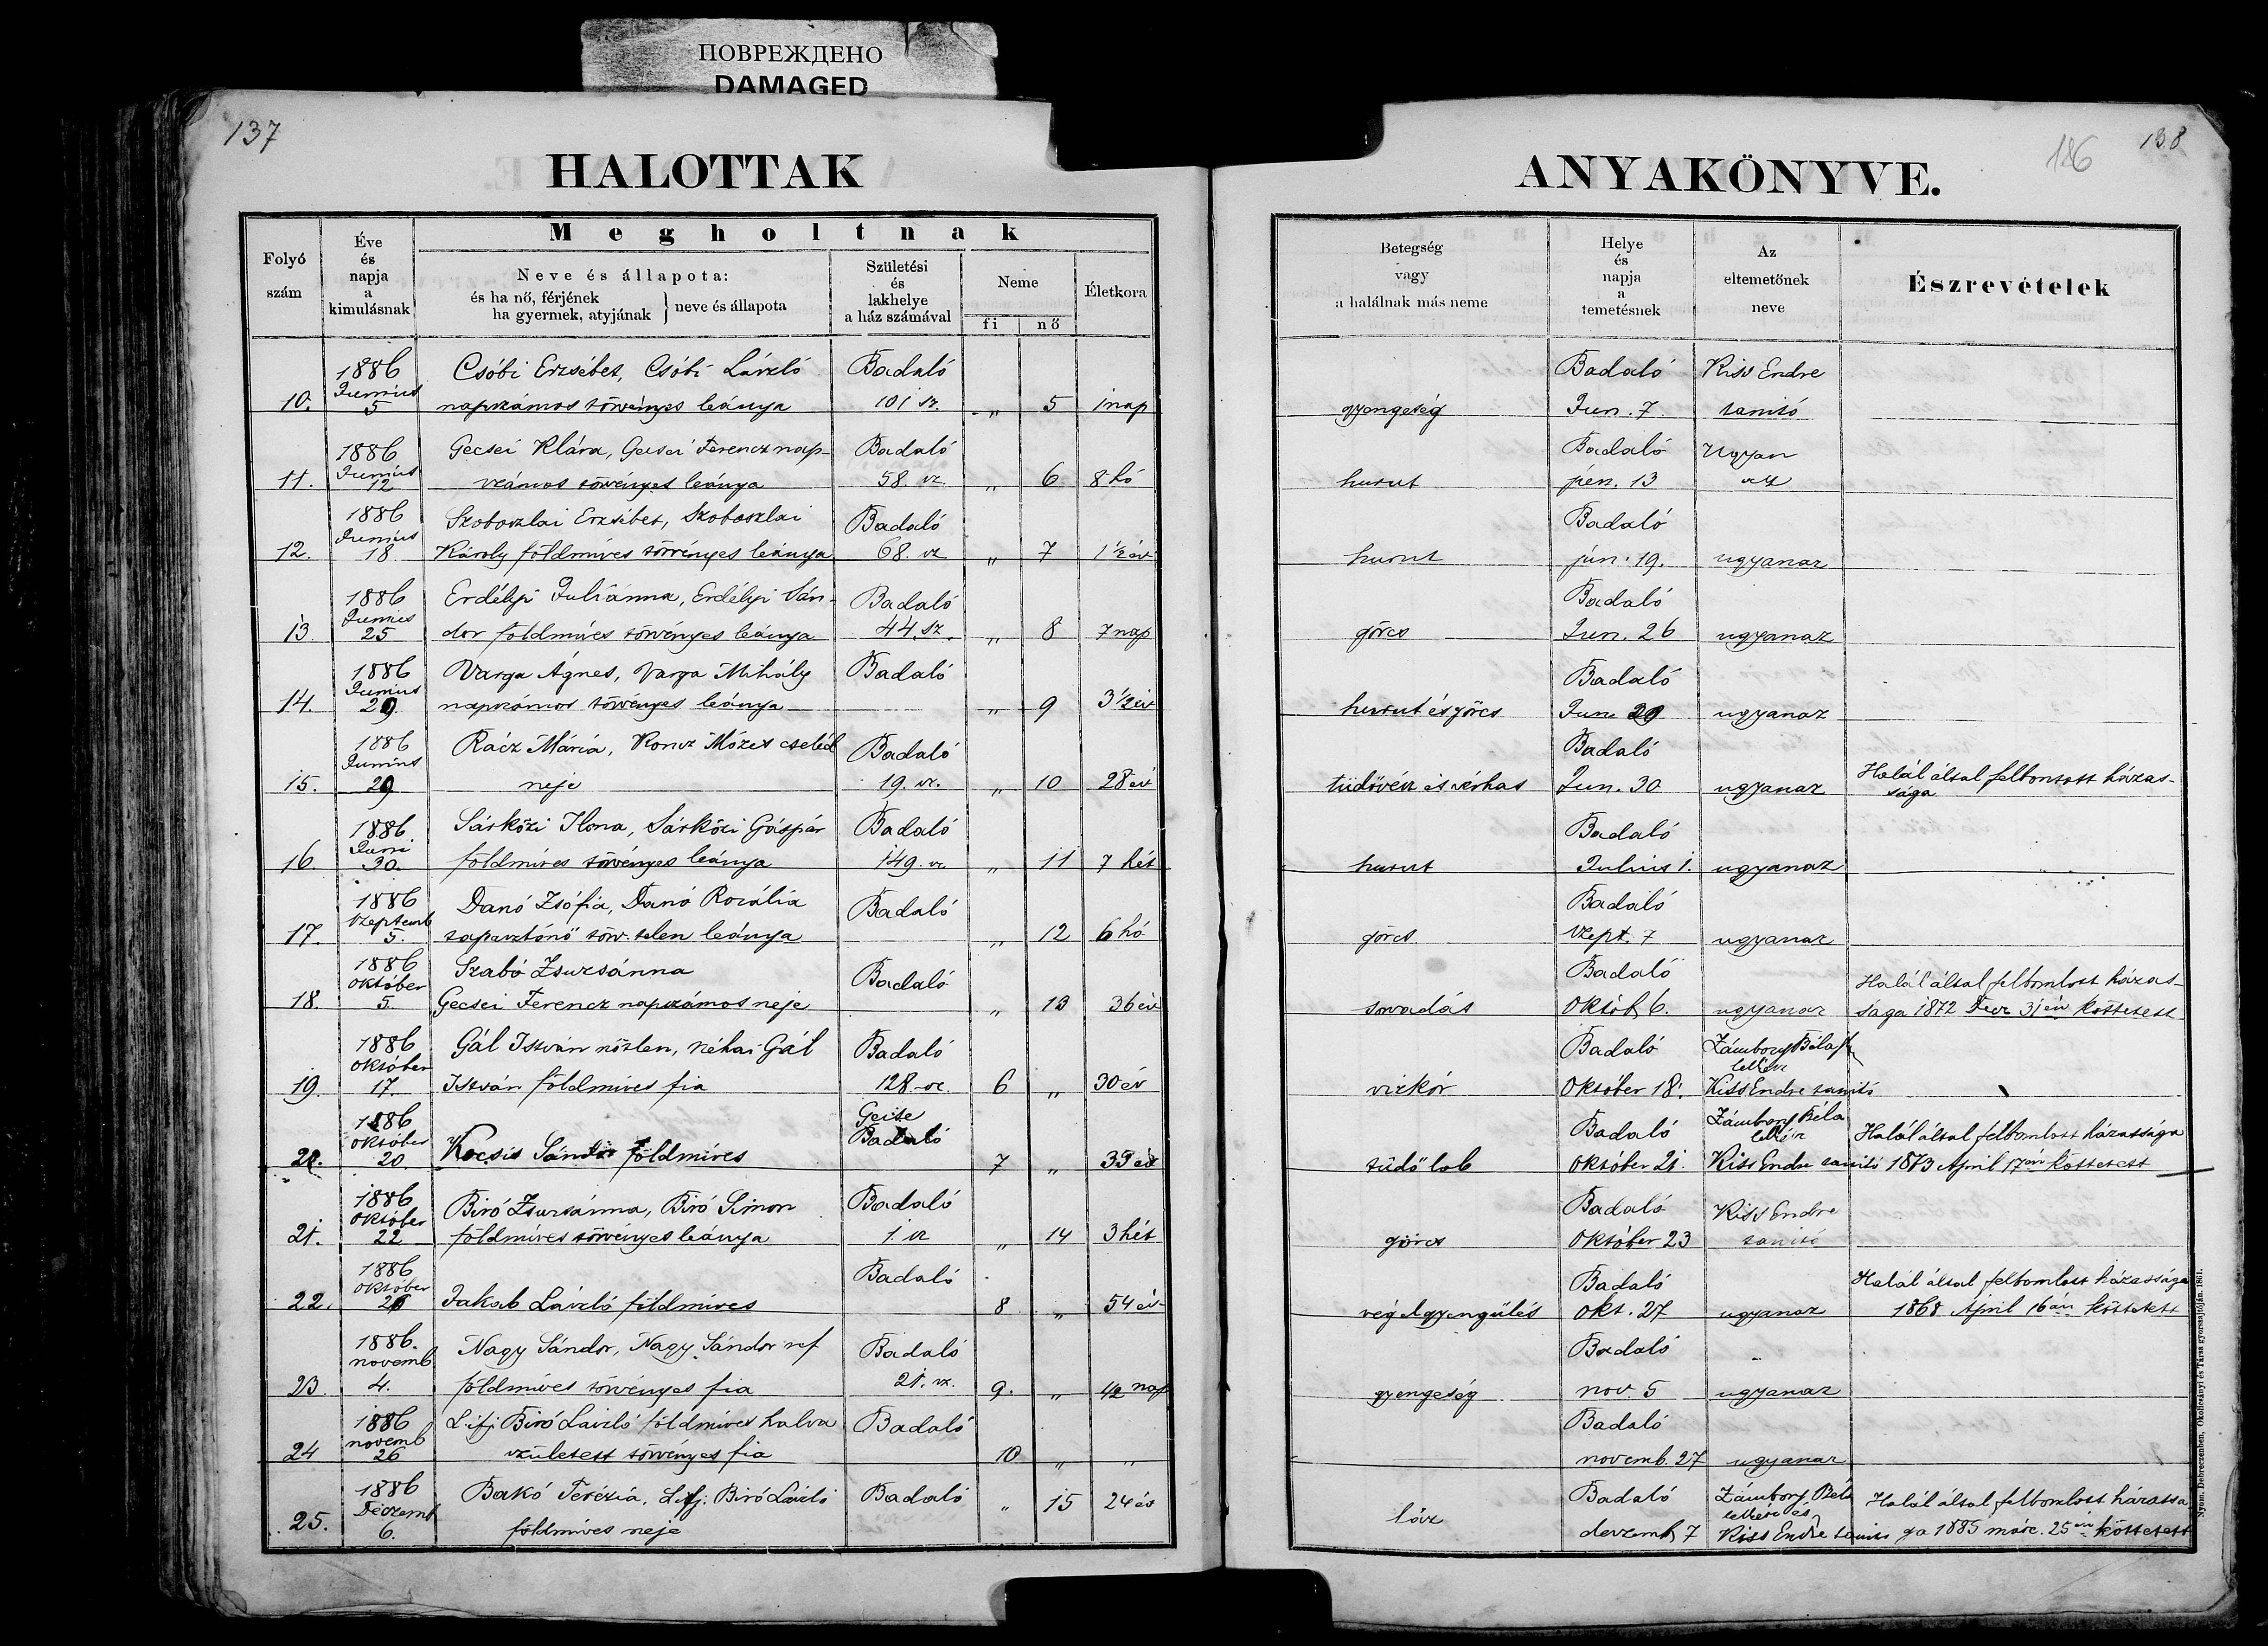 ПОВРЕЖДЕНО
DAMAGED
137
HALOTTAK
Folyó szám
Éve és napja a kimulásnak
Megholtnak
Neve és állapota:
és ha nő, férjének
ha gyermek, atyjának } neve és állapota
Születési és lakhelye a ház számával
Neme
fi nő
Életkora
10. 1886 Junius 5 Csóbi Erzsébet, Csóbi László Badaló
napszámos törvényes leánya 101 sz. „ 5 1 nap
11. 1886 Junius 12 Gecsei Klára, Gecsei Ferencz nap-
számos törvényes leánya Badaló 58. sz. „ 6 8 hó
12. 1886 Junius 18 Szoboszlai Erzsébet, Szoboszlai
Károly földmives törvényes leánya Badaló 68. sz „ 7 1½ év
13. 1886 Junius 25 Erdélyi Juliánna, Erdélyi Sán-
dor földmives törvényes leánya Badaló 44. sz. „ 8 7 nap
14. 1886 Junius 29 Varga Ágnes, Varga Mihály
napszámos törvényes leánya Badaló „ 9 3½ év
15. 1886 Junius 29 Rácz Mária, Koncz Mózes cseléd
neje Badaló 19. sz. „ 10 28 év
16. 1886 Juni 30. Sárközi Ilona, Sárközi Gáspár
földmives törvényes leánya Badaló 149. sz „ 11 7 hét
17. 1886 Szeptemb 5. Danó Zsófia, Danó Rozália
tapasztónő törv. telen leánya Badaló „ 12 6 hó
18. 1886 október 5. Szabó Zsuzsánna
Gecsei Ferencz napszámos neje Badaló „ 13 36 év
19. 1886 október 17. Gál István nőtlen, néhai Gál
István földmives fia Badaló 128. sz. 6 „ 30 év
20. 1886 október 20 Kocsis Sándor földmives Badaló 7 „ 39 év
21. 1886 október 22 Biró Zsuzsánna, Biró Simon
földmives törvényes leánya Badaló 1 sz „ 14 3 hét
22. 1886 október 26 Jakab László földmives Badaló 8 „ 54 év
23 1886. novemb 4. Nagy Sándor, Nagy Sándor ref
földmives törvényes fia Badaló 21. sz. 9. „ 42 nap
24 1886 novemb 26 L. ifj. Biró László földmives halva
született törvényes fia Badaló 10 „ „
25. 1886 Deczemb 6. Bakó Terézia, L. ifj. Biró László
földmives neje Badaló „ 15 24 év
186
138
ANYAKÖNYVE.
Betegség vagy a halálnak más neme
Helye és napja a temetésnek
Az eltemetőnek neve
Észrevételek
gyengeség Badaló Jun. 7 Kiss Endre tanitó
hurut Badaló jun. 13 Ugyan az
hurut Badaló jún. 19. ugyanaz
görcs Badaló Jun. 26 ugyanaz
hurut és görcs Badaló Jun. 29 ugyanaz
tüdővész és vérhas Badaló Jun. 30 ugyanaz Halál által felbontott házas-
sága
hurut Badaló Julius 1. ugyanaz
görcs Badaló Szept. 7 ugyanaz
sorvadás Badaló Októb 6. ugyanaz Halál által felbomlott házas-
sága 1872 31 én köttetett
vizkór Badaló Október 18. Zámbory Béla lelkész
Kiss Endre tanitó
tüdő lob Badaló október 21. Zámbory Béla lelkész
Kiss Endre tanitó Halál által felbomlott házassága
1873 April 17én köttetett
görcs Badaló Október 23 Kiss Endre tanitó
végelgyengülés Badaló Okt. 27 ugyanaz Halál által felbomlott házassága
1868 April 16án köttetett
gyengeség Badaló nov. 5 ugyanaz
Badaló novemb. 27 ugyanaz
láz Badaló deczemb 7 Zámbory Béla lelkész és
Kiss Endre tanitó Halál által felbomlott házassá
ga 1885 márc. 25én köttetett
Nyom. Debreczenben, Okolicsányi és Társa gyorssajtóján. 1861.